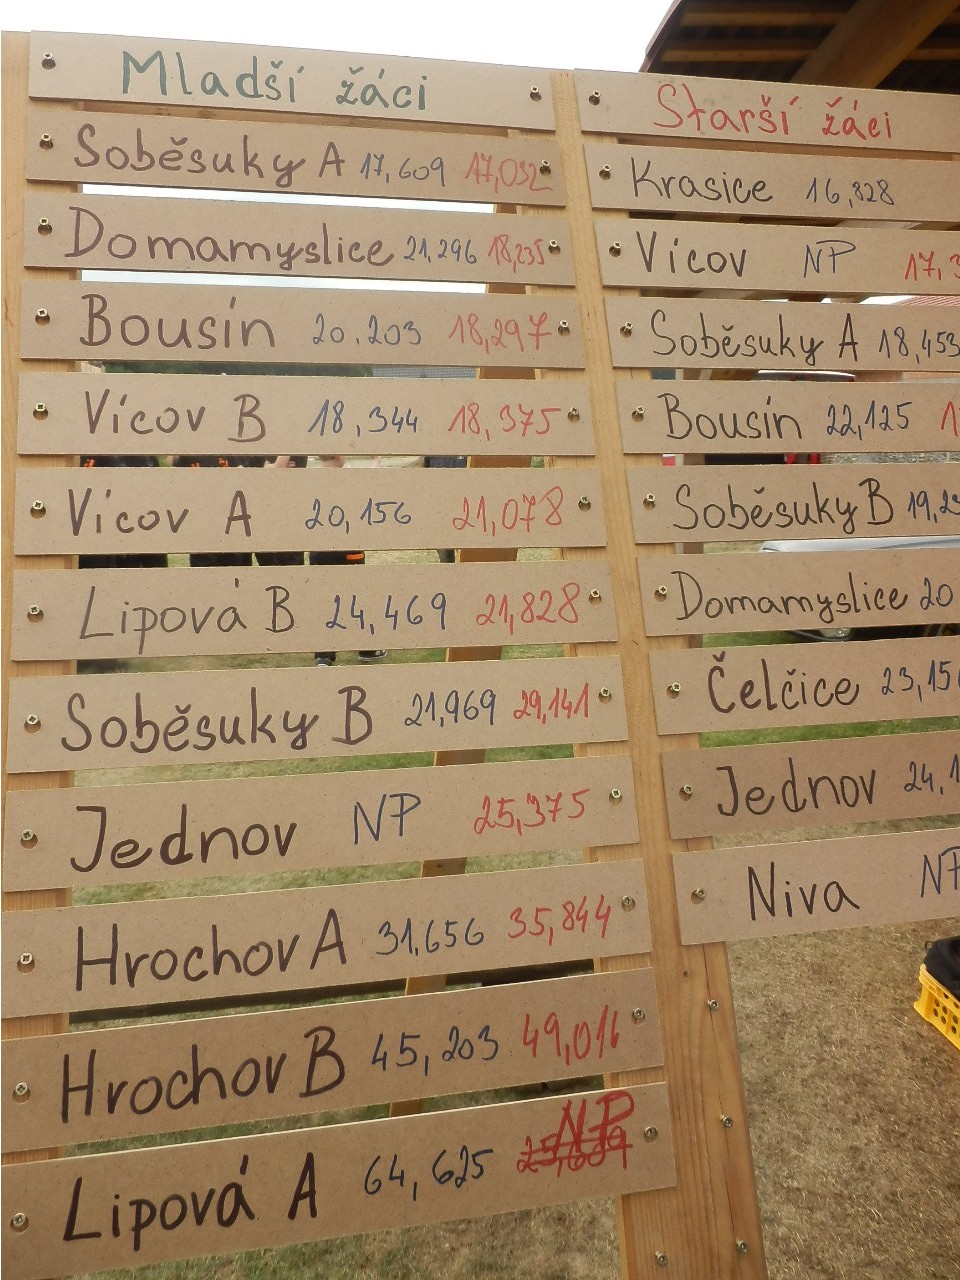 Mladší žáci
Soběsuky A 17,609 17,032
Domamyslice 21,296 18,235
Bousín 20.203 18,297
Vícov B 18,344 18,375
Vícov A 20,156 21,078
Lipová B 24,469 21,828
Soběsuky B 21,969 29,141
Jednov NP 25,375
Hrochov A 31,656 35,844
Hrochov B 45,203 49,016
Lipová A 64,625 NP
Starší žáci
Krasice 16,828
Vícov NP 17,3
Soběsuky A 18,453
Bousín 22,125
Soběsuky B
Domamyslice 20
Čelčice 23,15
Jednov 24,1
Niva NP